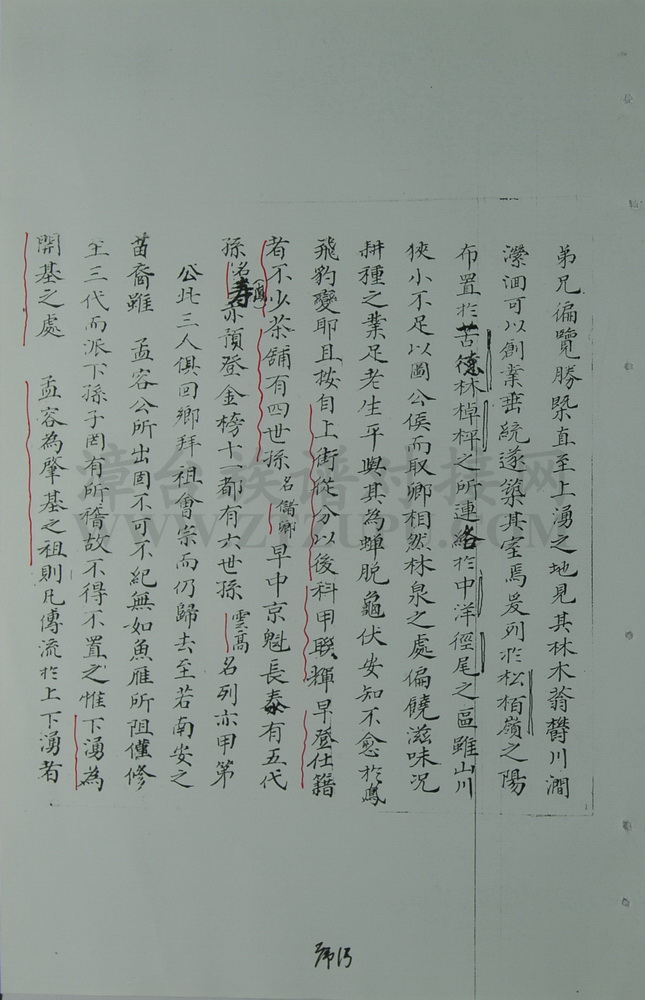 弟兄偏覽勝槩直至上湧之地見其林木蓊欝川澗
瀠洄可以創業垂統遂築其室焉爰列於松栢嶺之陽
布置於苦德林棹枰之所連絡於中洋徑尾之區雖山川
狹小不足以圖公侯而取卿相然林泉之處偏饒滋味况
耕種之業足老生平與其為蟬脱龜伏安知不愈於鳳
飛豹變耶且按自上街從分以後科甲聯輝早登仕籍
者不少茶舖有四世孫名儲卿早中京魁長泰有五代
孫名壽亦預登金榜十一都有六世孫雲高名列亦甲第
公此三人俱回鄉拜祖會宗而仍歸去至若南安之
苗裔雖 孟容公所出固不可不紀無如魚雁所阻僅修
至三代而派下孫子罔有所稽故不得不置之惟下湧為
開基之處 孟容為肇基之祖則凡傳流於上下湧者
漳台族谱对接网